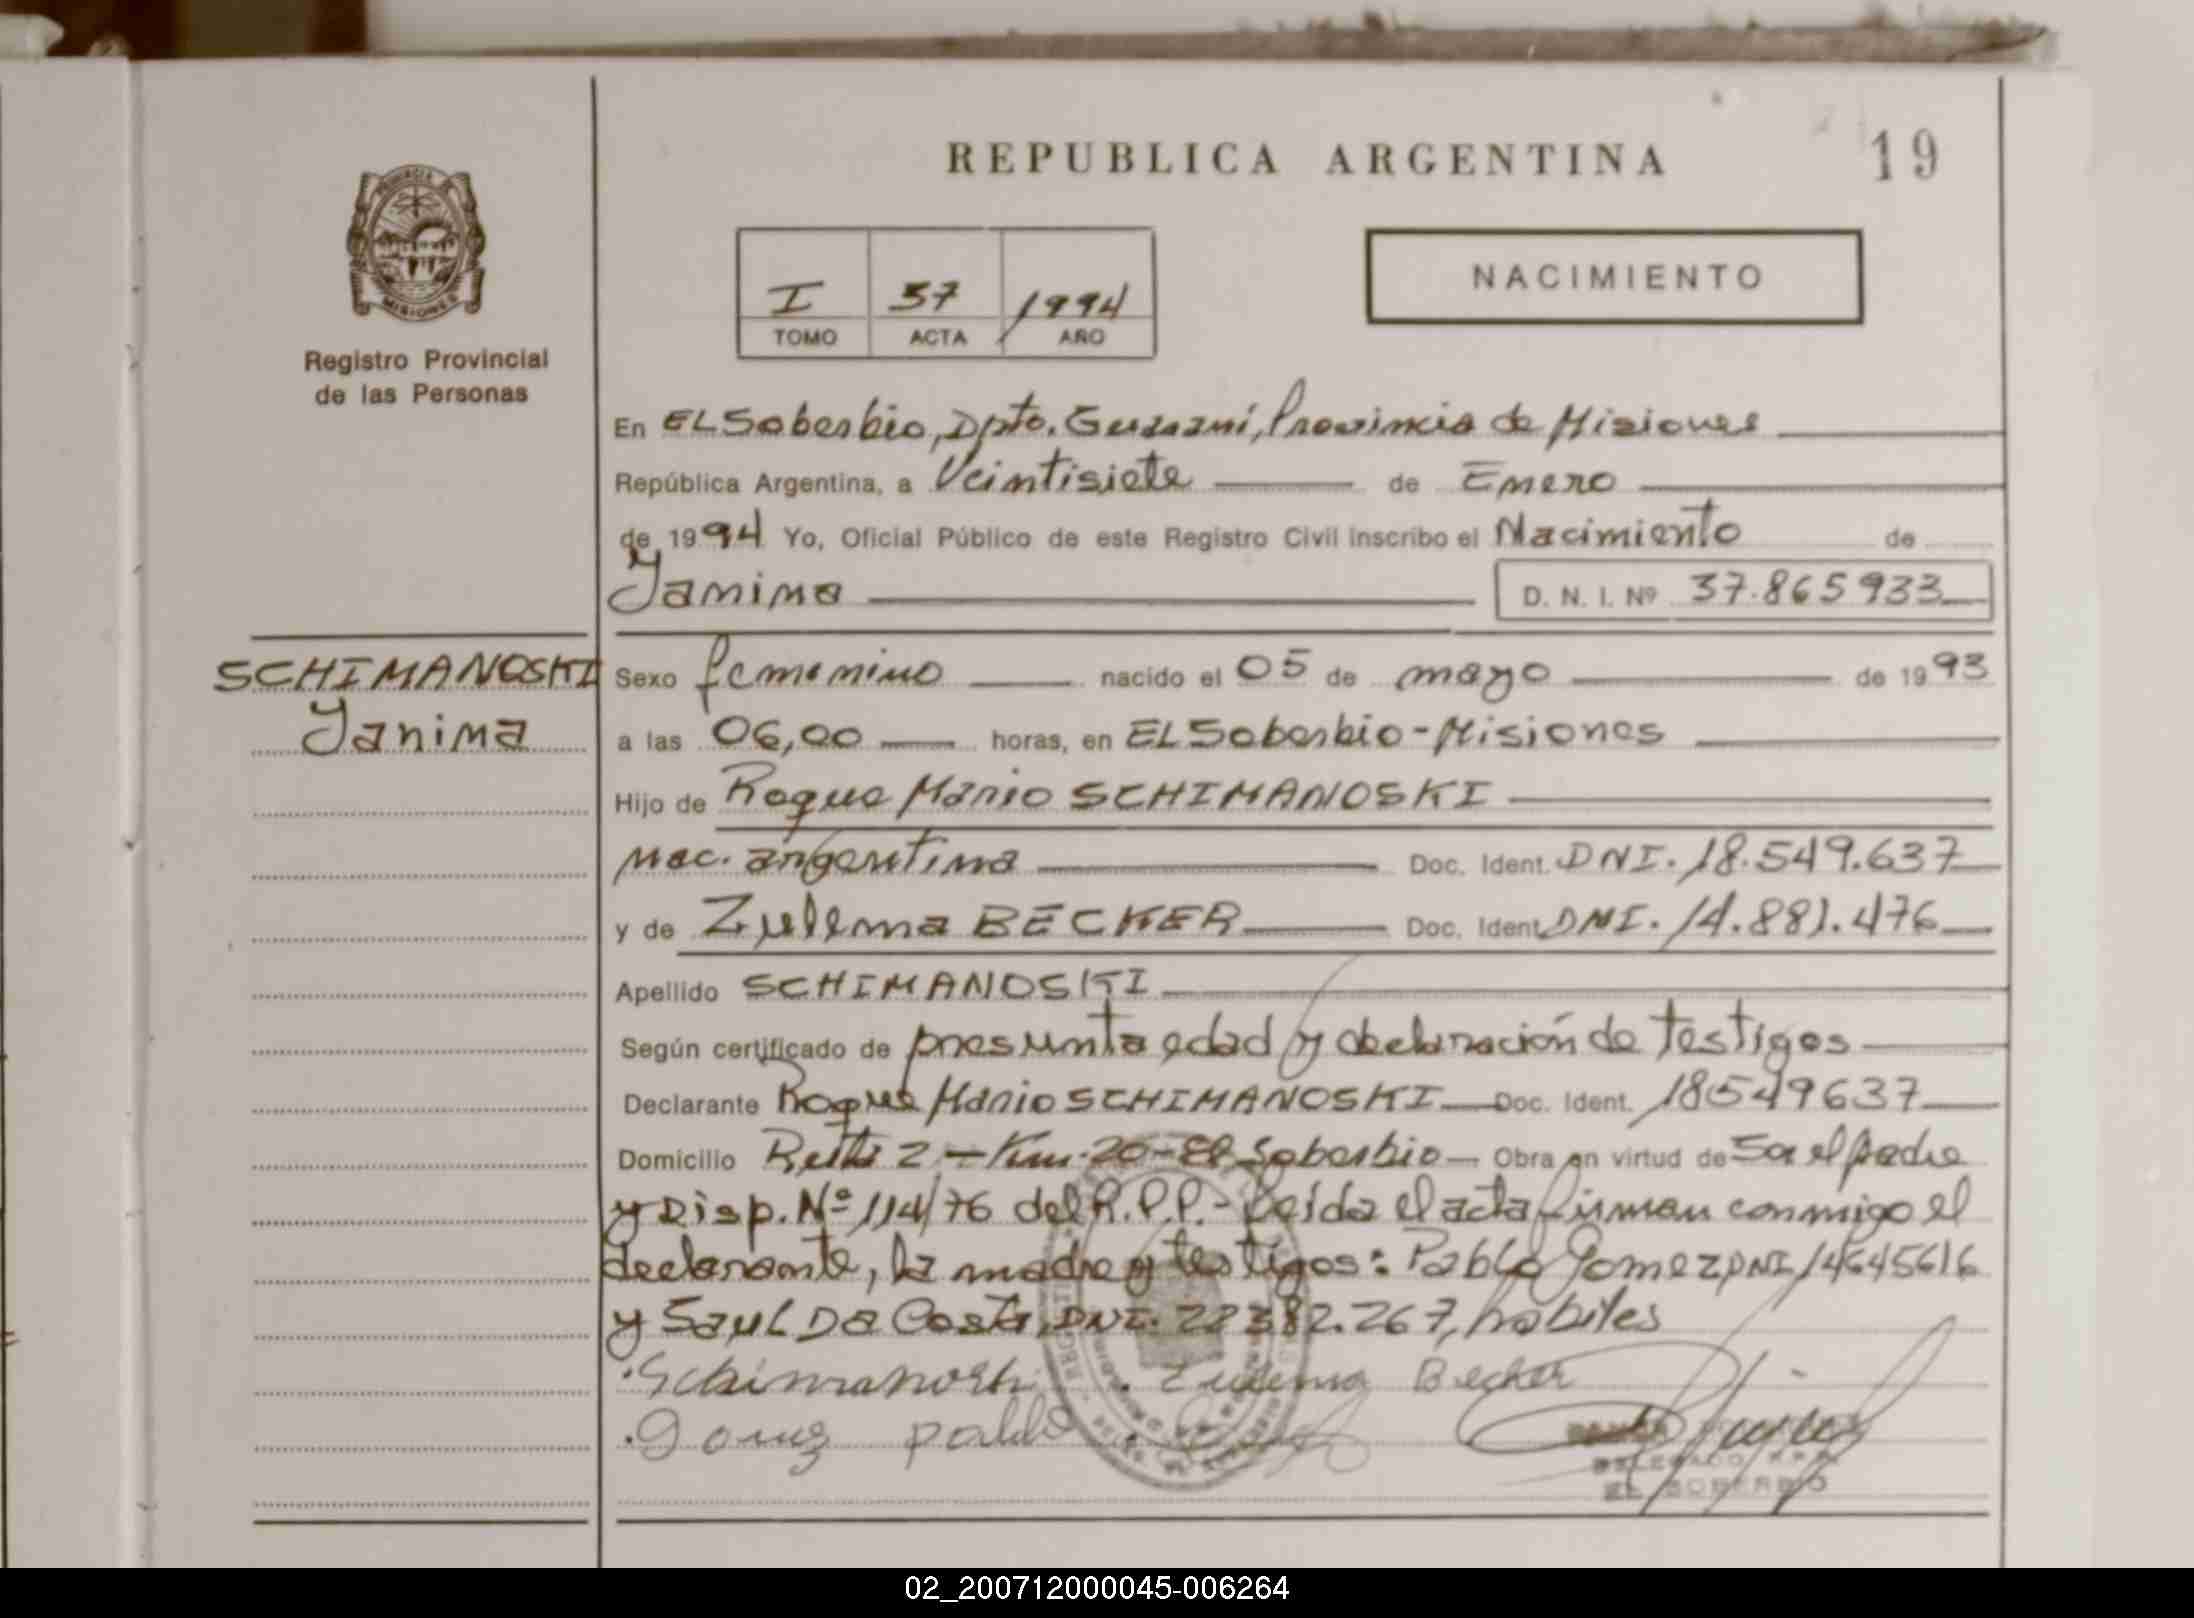 REPUBLICA ARGENTINA
19
PROVINCIA DE
MISIONES
Registro Provincial
de las Personas
I 37 1994
TOMO ACTA AÑO
NACIMIENTO
En EL Soberbio, Dpto. Guaraní, Provincia de Misiones
República Argentina, a Veintisiete de Enero
de 1994 Yo, Oficial Público de este Registro Civil inscribo el Nacimiento de
Yanina D. N. I. Nº 37.865933
SCHIMANOSKI
Yanina
Sexo femenino nacido el 05 de mayo de 1993
a las 06,00 horas, en EL Soberbio - Misiones
Hijo de Roque Mario SCHIMANOSKI
nac. argentina Doc. Ident. DNI. 18.549.637
y de Zulema BECKER Doc. Ident. DNI. 14.881.476
Apellido SCHIMANOSKI
Según certificado de presunta edad y declaración de testigos
Declarante Roque Mario SCHIMANOSKI Doc. Ident. 18549637
Domicilio Ruta 2 - Km. 20 - El Soberbio - Obra en virtud de Ser el padre
y Disp. Nº 114/76 del R.P.P. - Leída el acta firman conmigo el
declarante, la madre y testigos: Pablo Gomez DNI 14645616
y SauL Da Costa, DNI. 22382.267, habiles
Schimanoski Zulema Becker
Gomez pablo
DELEGADO R.P.P.
EL SOBERBIO
02_200712000045-006264